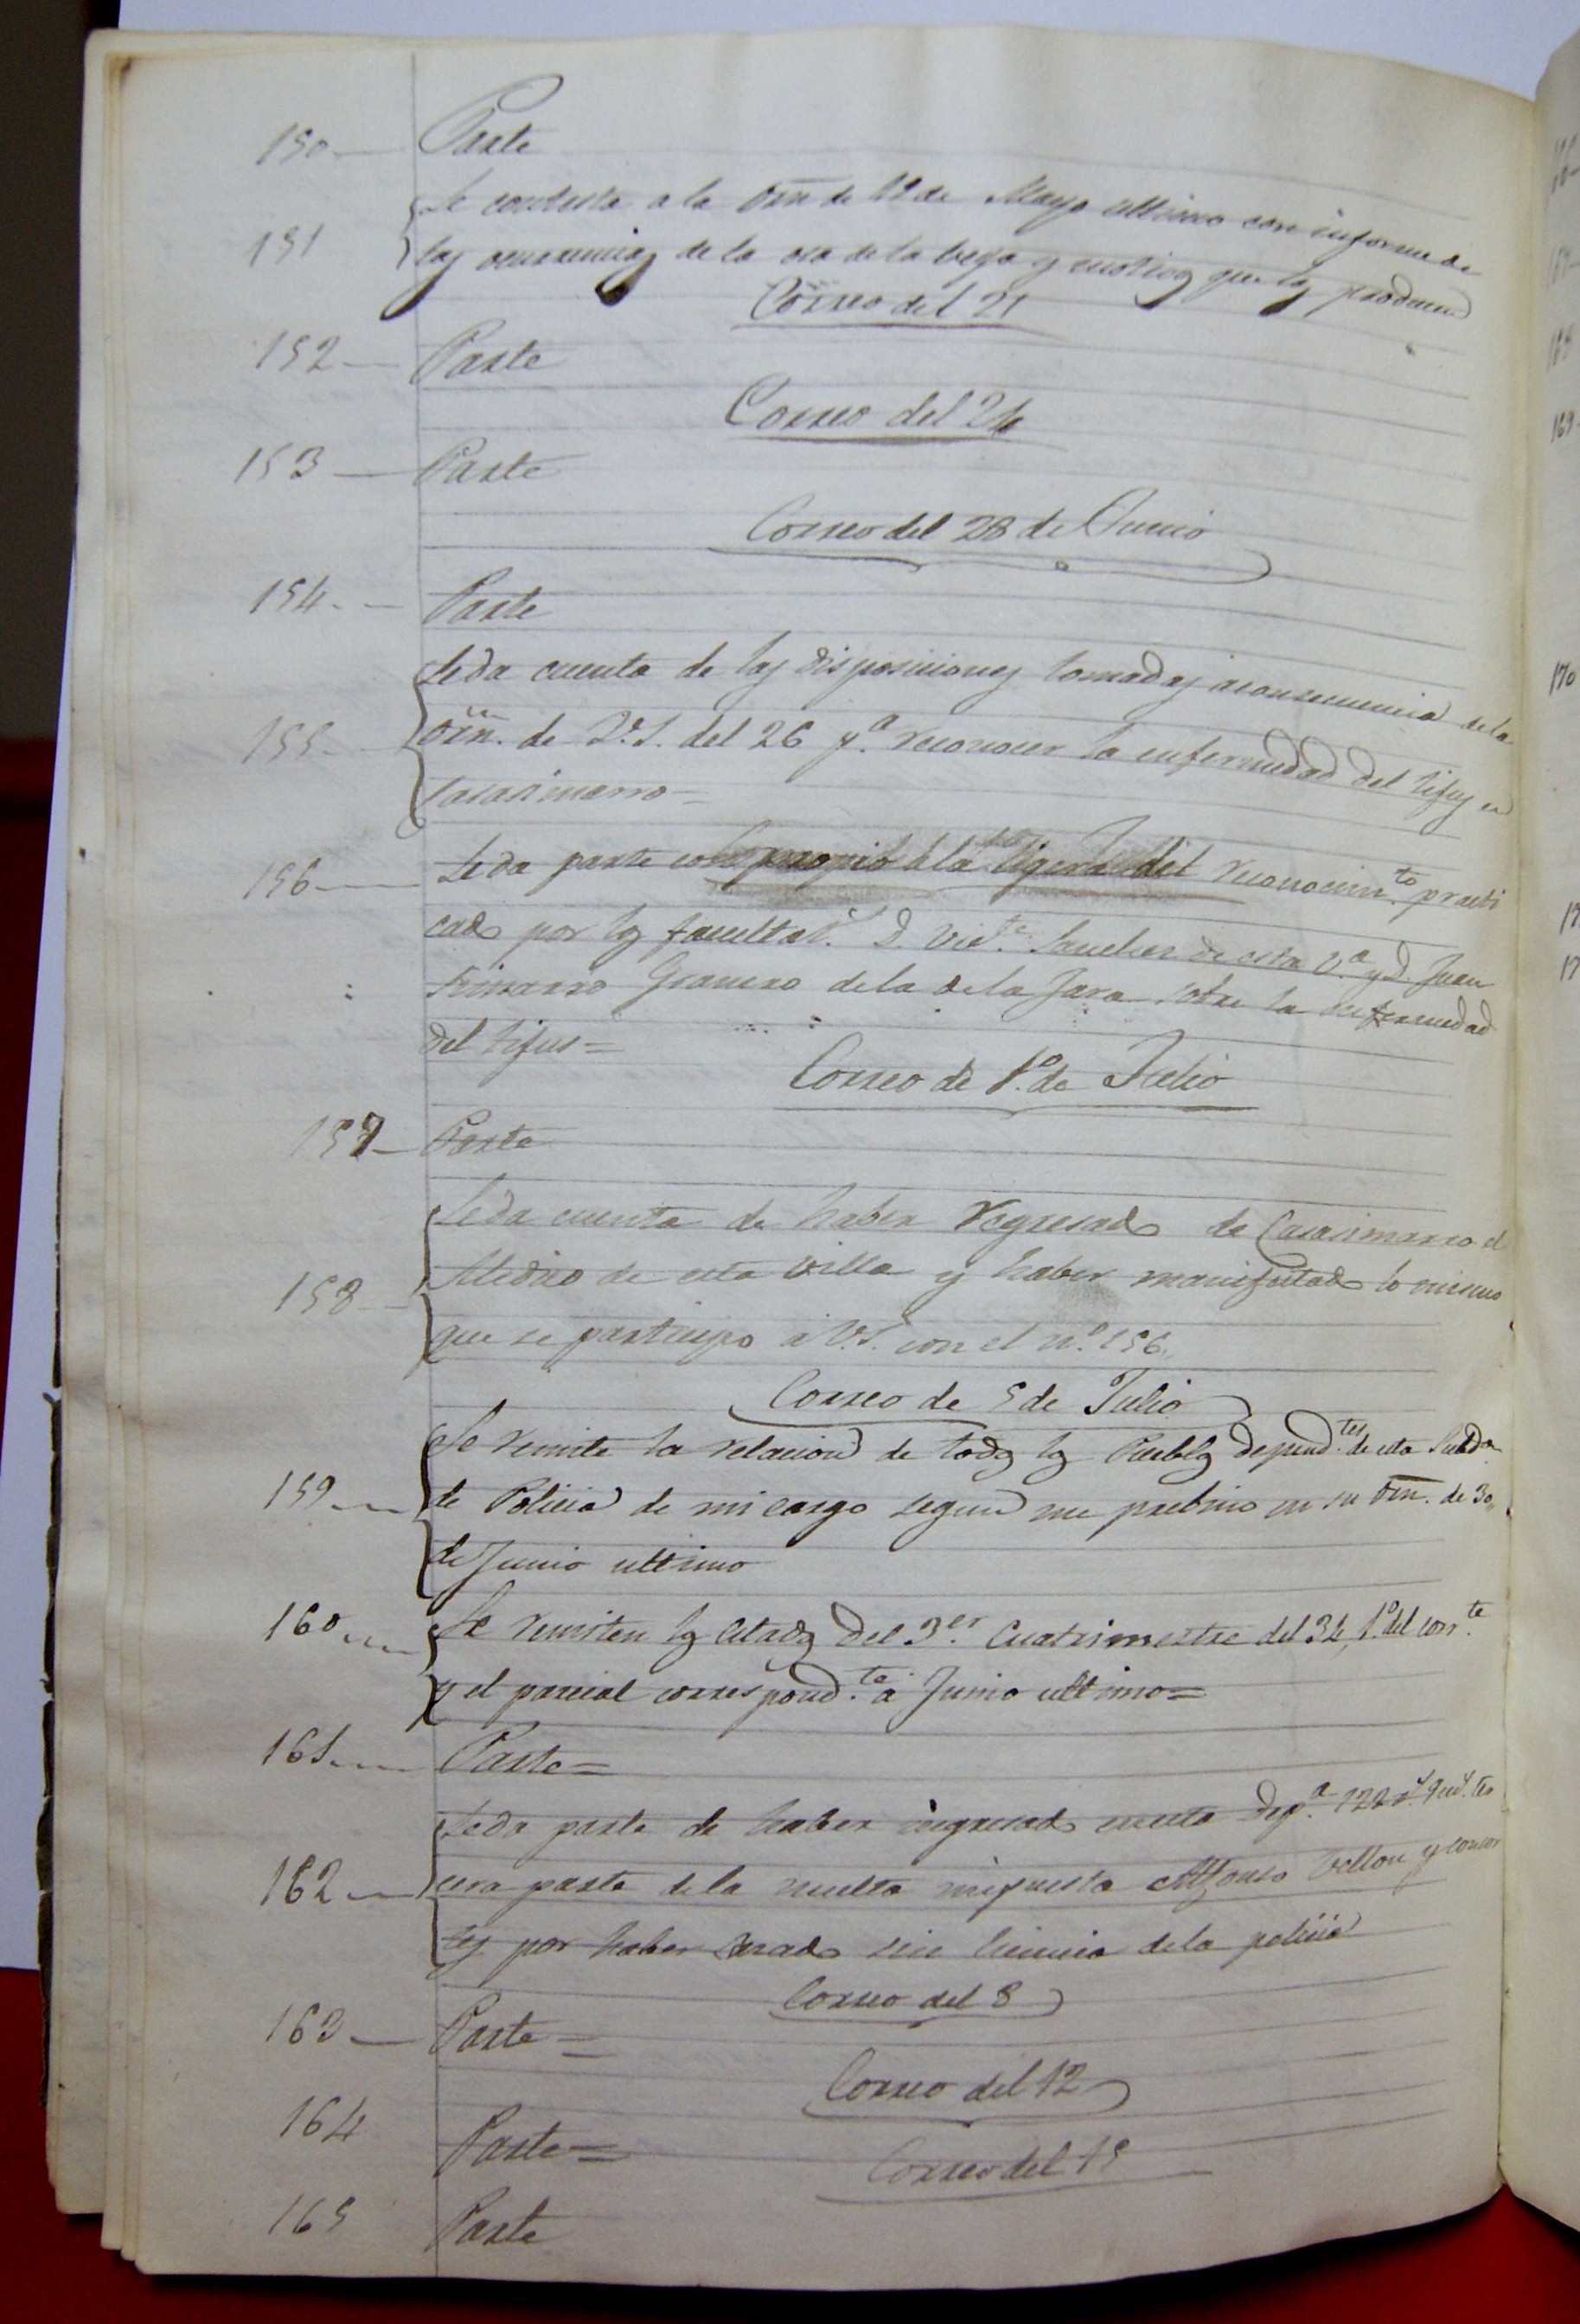 150 Parte
Se contesta a la orn de 19 de Mayo ultimo con informe de
151 las ocurrencias de la de la bega y motivos que las producen
Correo del 21
152 Parte
Correo del 24
153 Parte
Correo del 28 de Junio
154 Parte
Se da cuenta de las disposiciones tomadas a consecuencia de la
155 orn. de V.S. del 26 pa. reconocer la enfermedad del tifus en
Casasimarro =
156 Se da parte con propio a la ligera del reconocimto. practi
cado por los facultat.s D. Victe. Sanchez de esta Va. y D. Juan
Granero de la de la Jara sobre la enfermedad
del tifus =
Correo de 1o. de Julio
157 Parte
Se da cuenta de haber regresado de Casasimarro el
158 Medico de esta villa y haber manifestado lo mismo
que se participo a V.S. con el no. 156
Correo de 5 de Julio
Se remite la relacion de todos los Pueblos depend.tes de esta Subda.
159 de Policia de mi cargo segun me prebino en su orn. de 30
de Junio ultimo
160 Se remiten los estados del 3er. cuatrimestre del 34, 1o. del corrte.
y el parcial correspondte. a Junio ultimo =
161 Parte =
Se da parte de haber ingresado en esta Depa. 122 rs. 9 ms. ter
162 cera parte de la multa impuesta Alfonso Vellon y consor
tes por haber sin licencia de la policia
Correo del 8
163 Parte =
Correo del 12
164 Parte =
Correo del 15
165 Parte
169
170